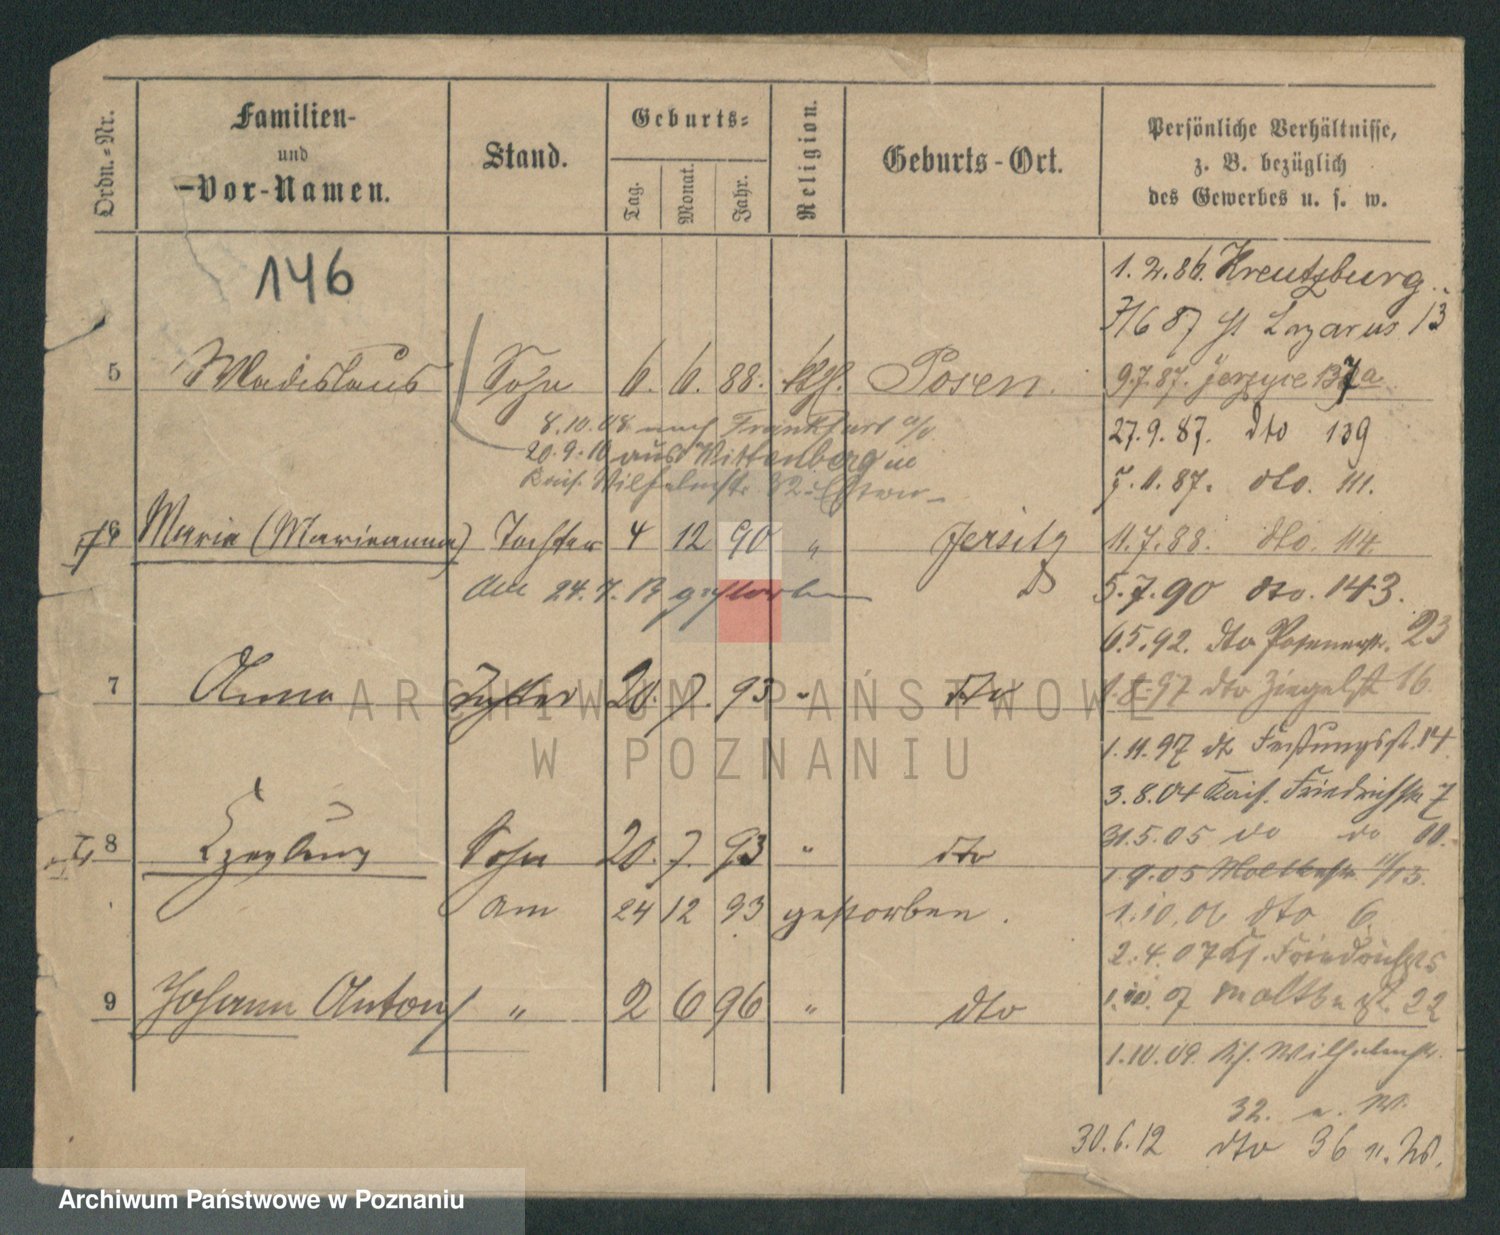 Ordn.-Nr.
Familien-
und
Vor-Namen.
Stand.
Geburts-
Tag.
Monat.
Jahr.
Religion.
Geburts-Ort.
Persönliche Verhältnisse,
z. B. bezüglich
des Gewerbes u. s. w.
146
1.2.86. Kreutzburg
87 St Lazarus 13
5 Wladislaus Sohn 6. 6. 88. kth. Posen.
9.7.87. 137a
8.10.08 nach Frankfurt a/O
27.9.87. dto 139
20.9.10 aus Wittenberg in
Wilhelmstr. 32
11.87. dto. 111.
6 Maria (Marianna) Tochter 4 12 90 " Jersitz
11.7.88. dto. 114
am 24.7. gestorben
5.7.90 dto. 143.
6.5.92. dto Posenerstr. 23
7 Anna Tochter 20. 7. 93 " dto
1.8.97 dto Ziegelst 16
1.11.97 dt Festungsst. 14
3.8.04 Kais. Friedrichstr 7
8 Sohn 20. 7. 93 " dto
.5.05 do do
1.9.05 Moltkestr
am 24 12 93 gestorben.
1.10.06 dto 6
2.4.07 Friedrichstr
9 Johann Anton " 2 6 96 " dto
1.10.07 Moltkestr. 22
1.10.09. Wilhelmstr.
32. W.
30.6.12 dto 36 n. W.
ARCHIWUM PAŃSTWOWE
W POZNANIU
Archiwum Państwowe w Poznaniu